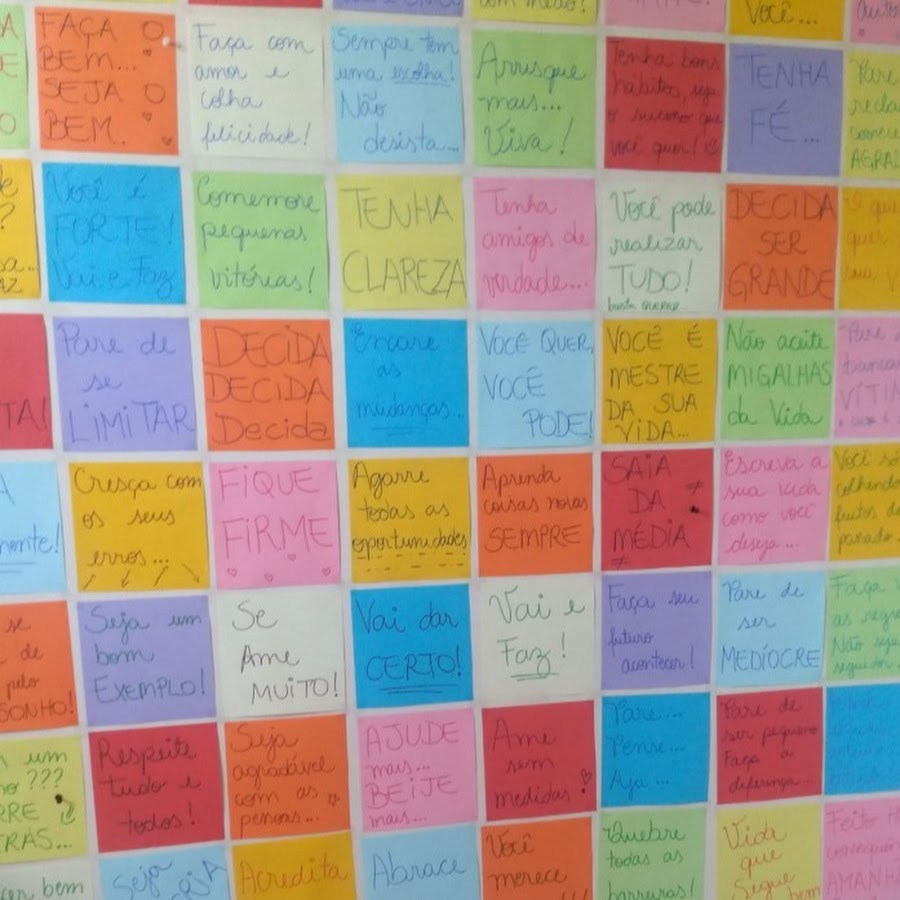 com medo!
VOCÊ...
FAÇA O
BEM...
SEJA O
BEM.
Faça com
amor e
colha
felicidade!
Sempre tem
uma escolha!
Não
desista...
Arrisque
mais...
Viva!
Tenha bons
hábitos, seja
o sucesso que
você quer!
TENHA
FÉ...
Pare
Você é
FORTE!
Vai e Faz
Comemore
pequenas
vitórias!
TENHA
CLAREZA
Tenha
amigos de
verdade...
Você pode
realizar
TUDO!
basta querer
DECIDA
SER
GRANDE
O que
quer
sua
Pare de
se
LIMITAR
DECIDA
DECIDA
Decida
Encare
as
mudanças...
VOCÊ QUER,
VOCÊ
PODE!
VOCÊ É
MESTRE
DA SUA
VIDA...
Não aceite
MIGALHAS
da Vida
Pare
bancar
VÍTIM
Cresça com
os seus
erros...
FIQUE
FIRME
Agarre
todas as
oportunidades
Aprenda
coisas novas
SEMPRE
SAIA
DA
MÉDIA
Escreva a
sua vida
como você
deseja...
Você só
colhendo
frutos do
passado.
se
de
pelo
SONHO!
Seja um
bom
EXEMPLO!
Se
Ame
MUITO!
Vai dar
CERTO!
Vai e
Faz!
Faça seu
futuro
acontecer!
Pare de
ser
MEDÍOCRE
Faça
as regras
Não seja
seguidor
um
???
RRE
TRÁS...
Respeite
tudo e
todos!
Seja
agradável
com as
pessoas...
AJUDE
mais...
BEIJE
mais...
Ame
sem
medidas!
Pare...
Pense...
Aja...
Pare de
ser pequeno
Faça a
diferença...
bem
Seja
Acredita
Abrace
Você
merece
!!!
Quebre
todas as
barreiras!
Vida
que
Segue
bem
Feito
AMANHÃ